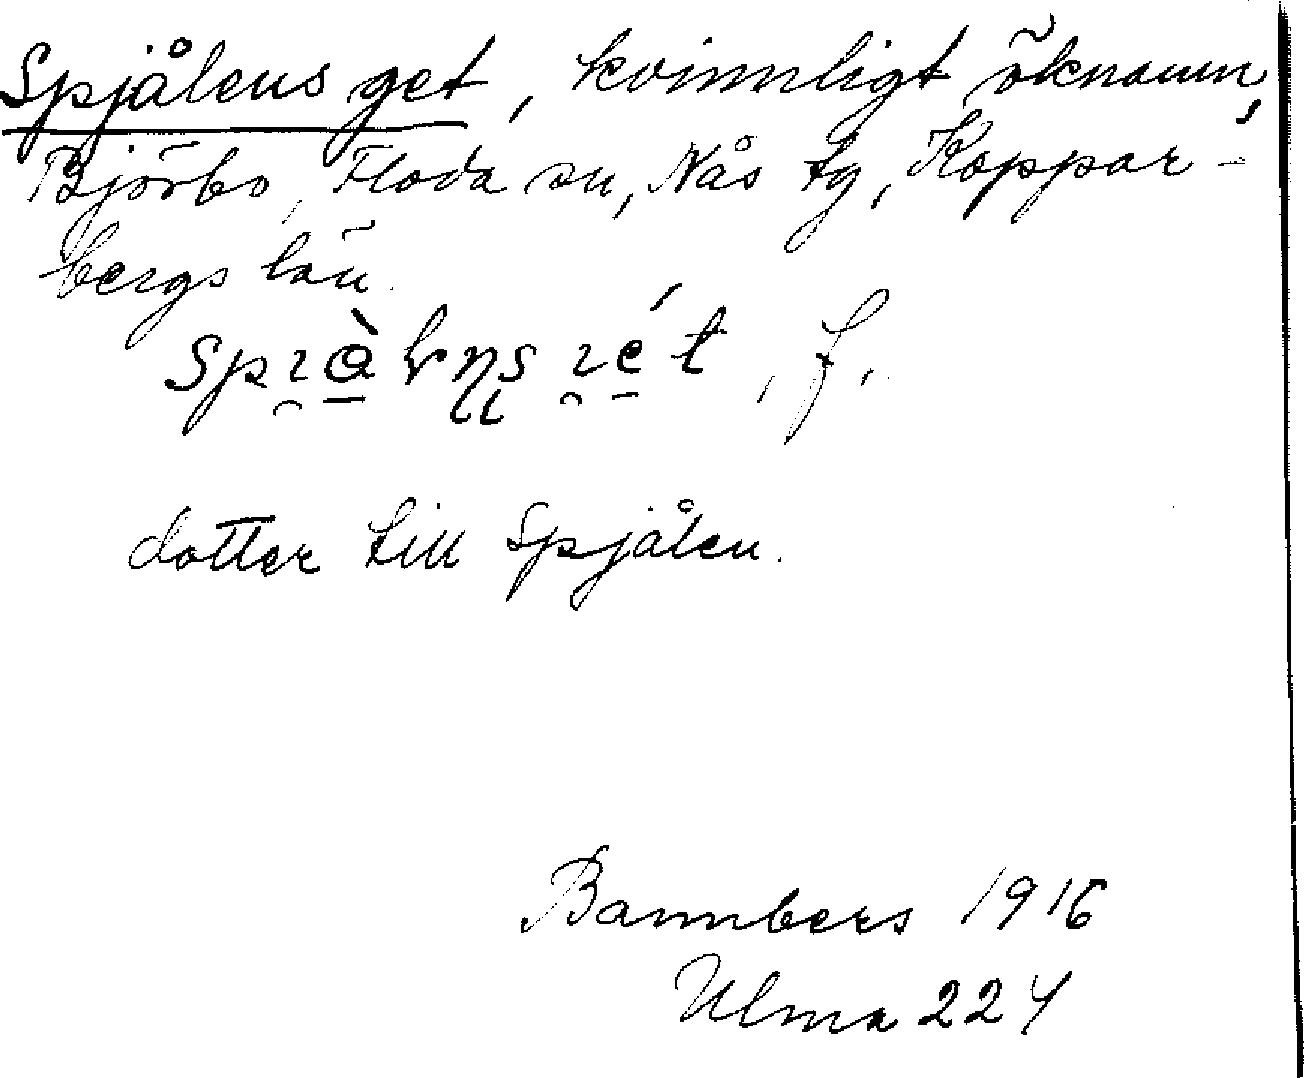 Spjålens get, kvinnligt öknamn,
Björbo, Floda sn, Nås tg, Koppar-
bergs län.
f.
dotter till Spjålen.
Bannbers 1916
Ulma 224